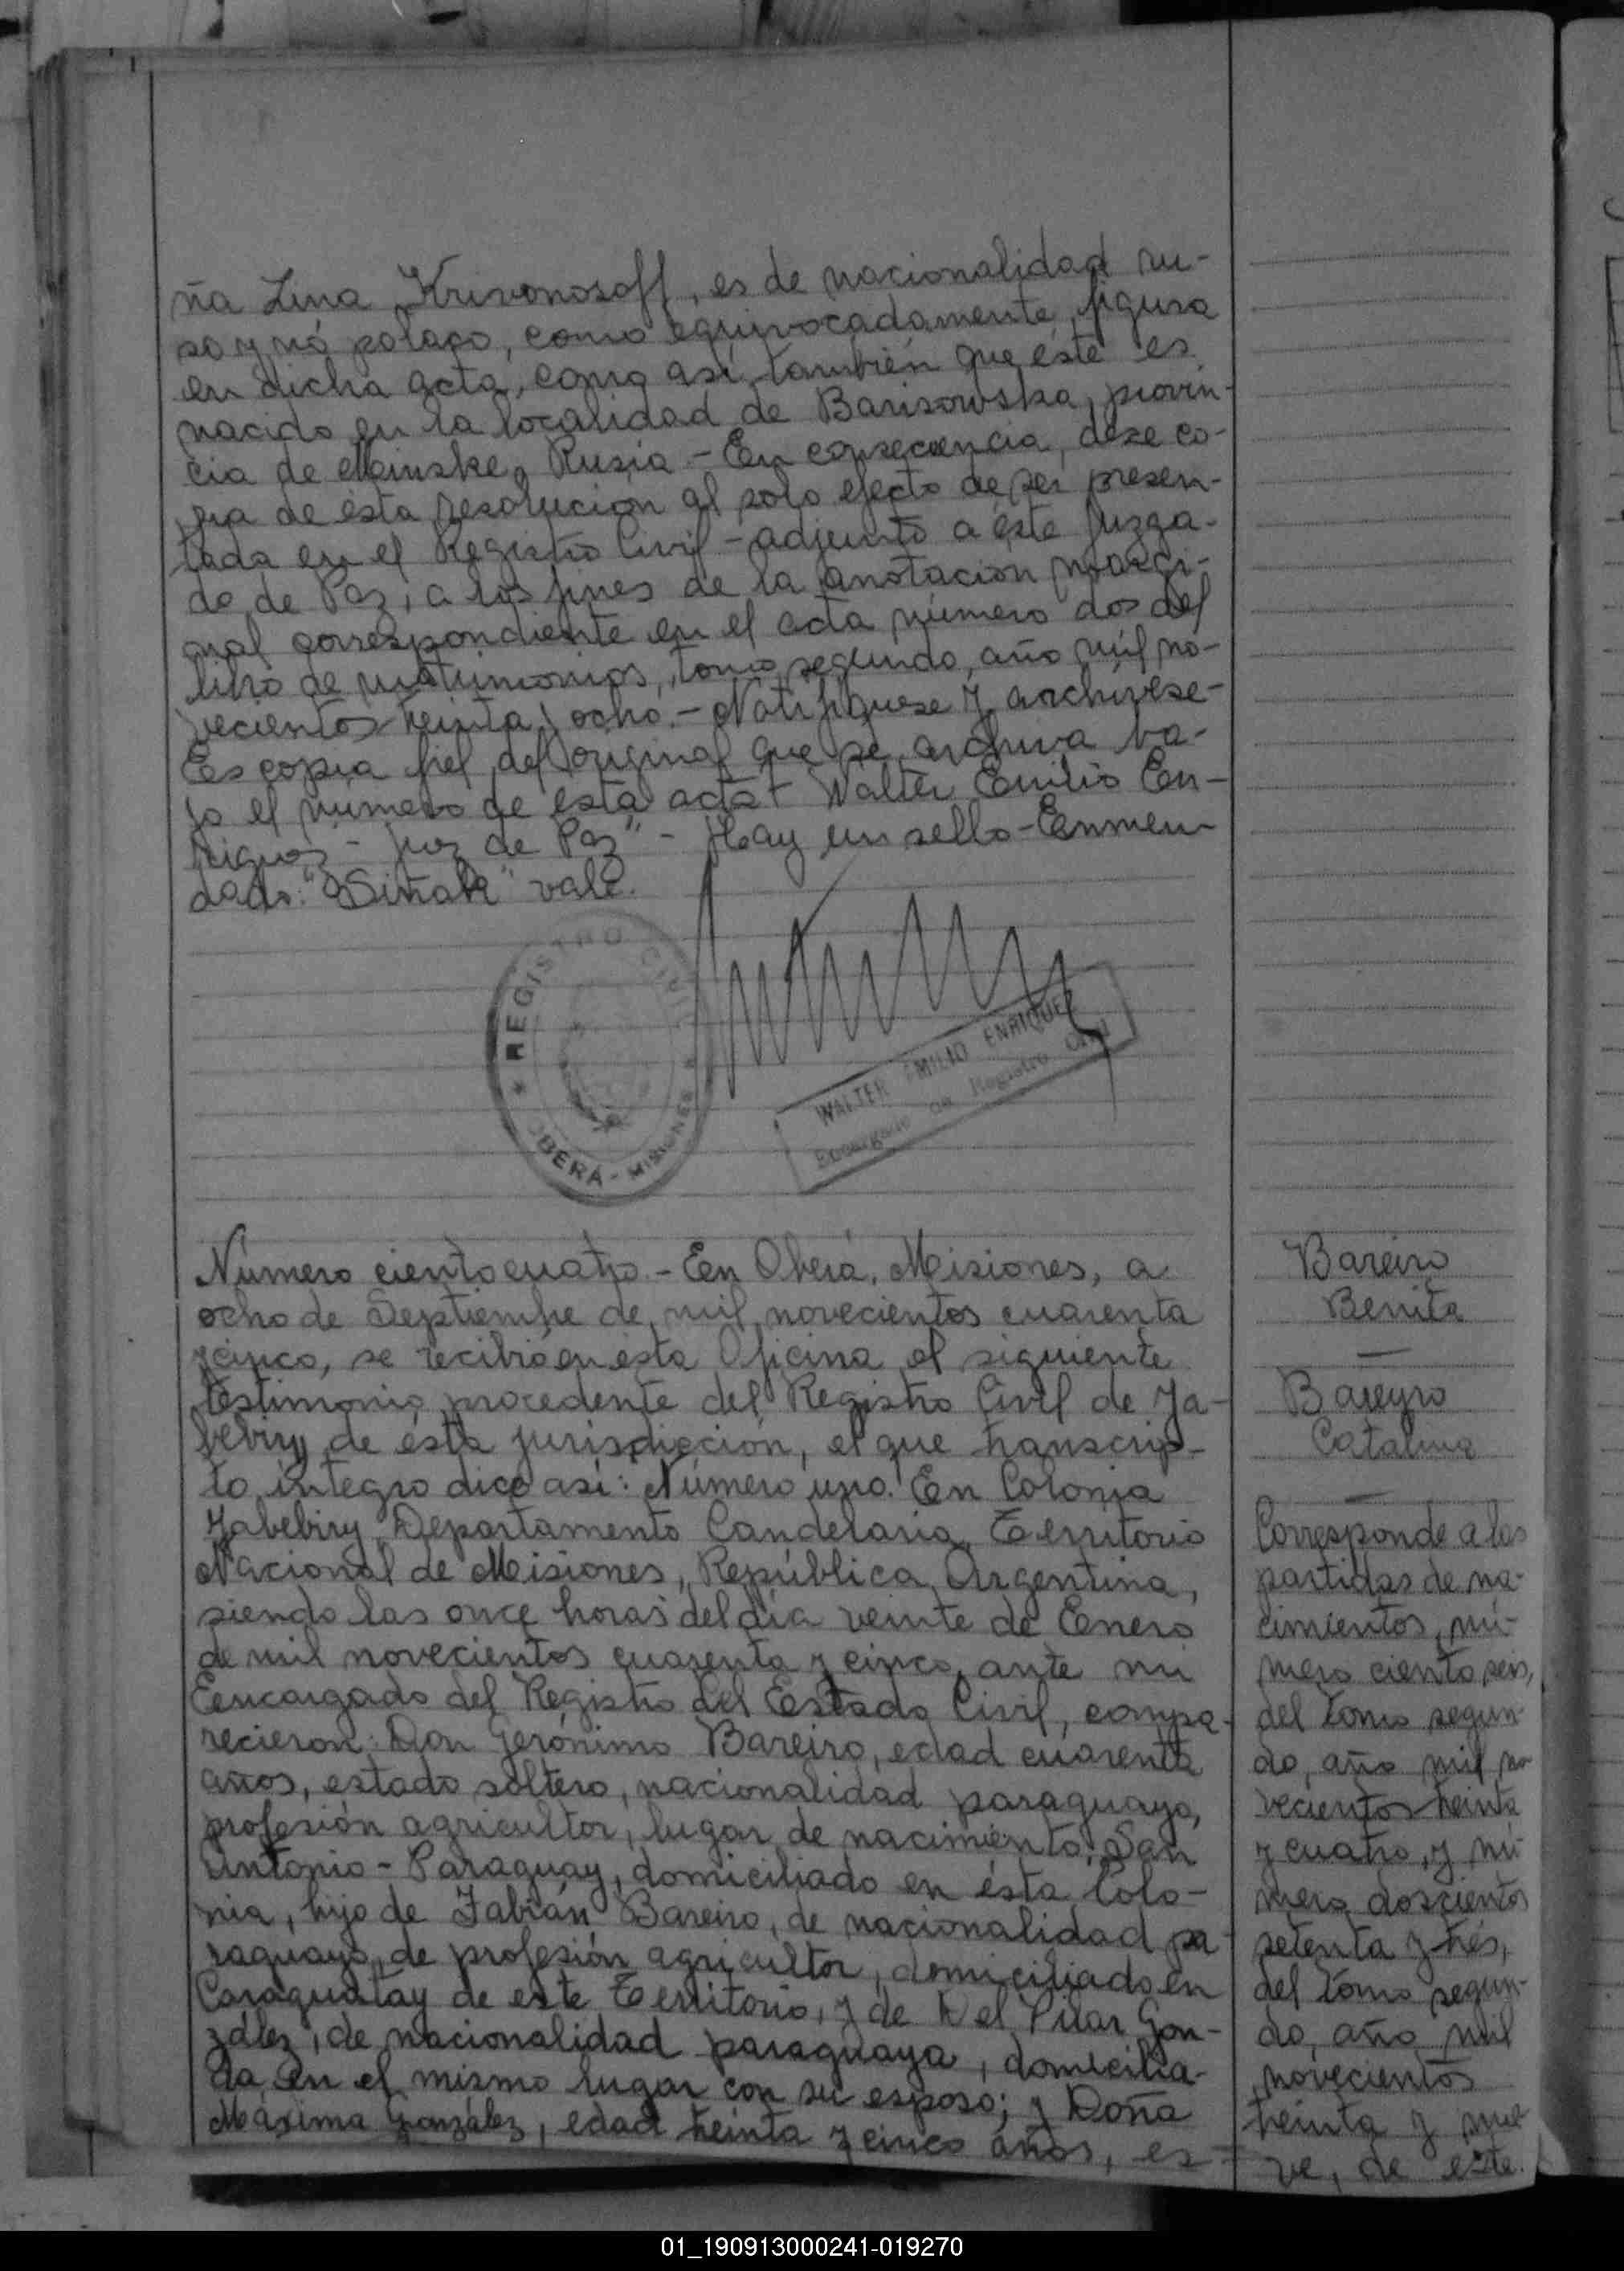 ña Lina Krivonosoff, es de nacionalidad ru-
so y nó polaco, como equivocadamente, figura
en dicha acta, como así, también que éste es
nacido en la localidad de Barisowska, provin-
cia de Mainske, Rusia - En consecuencia, dése co-
pia de ésta resolución al solo efecto de ser presen-
tada en el Registro Civil - adjunto a éste Juzga-
do de Paz, a los fines de la anotación margi-
nal correspondiente en el acta número dos del
libro de matrimonios, tomo segundo, año mil no-
vecientos treinta y ocho. - Notifíquese y archívese -
Es copia fiel del original que se archiva ba-
jo el número de esta acta - Walter Emilio En-
riquez - Juez de Paz" - Hay un sello - Enmen-
dado: "Siñak" vale.
REGISTRO CIVIL
OBERÁ - MISIONES
WALTER EMILIO ENRIQUEZ
Encargado de Registro Civil
Número ciento cuatro. - En Oberá, Misiones, a
ocho de Septiembre de mil novecientos cuarenta
y cinco, se recibió en ésta Oficina el siguiente
testimonio procedente del Registro Civil de Ya-
bebiry de ésta jurisdicción, el que transcrip-
to íntegro dice así: Número uno. En Colonia
Yabebiry, Departamento Candelaria, Territorio
Nacional de Misiones, República Argentina,
siendo las once horas del día veinte de Enero
de mil novecientos cuarenta y cinco, ante mi
Encargado del Registro del Estado Civil, compa-
recieron: Don Gerónimo Bareiro, edad cuarenta
años, estado soltero, nacionalidad paraguayo,
profesión agricultor, lugar de nacimiento: San
Antonio - Paraguay, domiciliado en ésta Colo-
nia, hijo de Fabián Bareiro, de nacionalidad pa-
raguayo, de profesión agricultor, domiciliado en
Caraguatay de este Territorio, y de Del Pilar Gon-
zález, de nacionalidad paraguaya, domicilia-
da en el mismo lugar con su esposo; y Doña
Máxima González, edad treinta y cinco años, es-
Bareiro
Benita
—
Bareyro
Catalina
—
Corresponde a las
partidas de na-
cimientos, nú-
mero ciento seis,
del tomo segun-
do, año mil no
vecientos treinta
y cuatro, y nú-
mero doscientos
setenta y trés,
del tomo segun-
do, año mil
novecientos
treinta y nue
ve, de este.
01_190913000241-019270